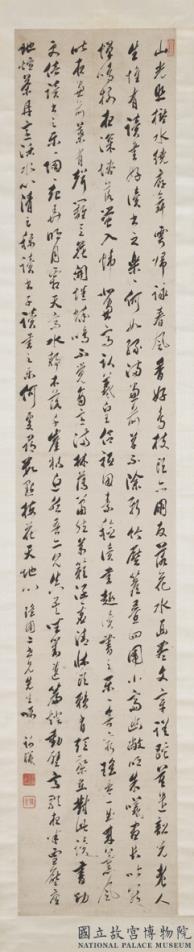 山光照檻水繞廊舞雩歸詠春風香好鳥枝頭亦朋友落花水面皆文章蹉跎莫遣韶光老人
生惟有讀書好讀書之樂樂何如綠滿窗前草不除新竹壓簷桑四圍小齋幽敞明朱曦晝長吟罷
蟬鳴樹夜深燼落螢入幃北窗高臥羲皇侶只因素稔讀書趣讀書之樂樂無窮瑤琴一曲來薰風
昨夜庭前葉有聲籬豆花開蟋蟀鳴不覺商意滿林薄蕭然萬籟涵虛清牀賴有短檠在對此讀書功
更倍讀書之樂樂陶陶起弄明月霜天高木落千崖枯迥然吾亦見真吾坐對韋編燈動壁高歌夜半雪壓廬
地爐茶鼎烹活水心清足稱讀書子讀書之樂何處尋數點梅花天地心 先生
國立故宮博物院
NATIONAL PALACE MUSEUM